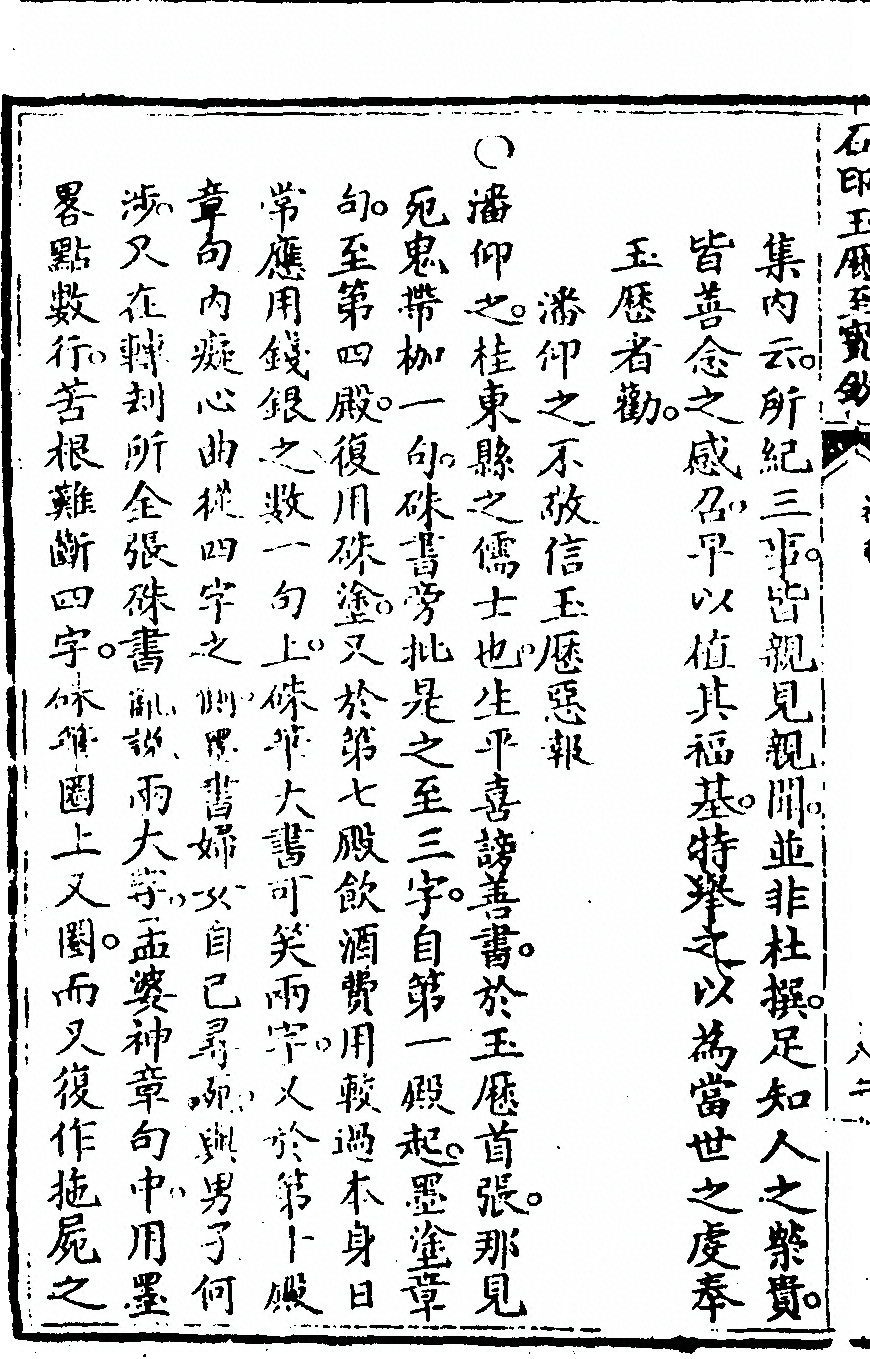 石印玉歷至寶鈔
集內云。所紀三事。皆親見親聞。並非杜撰。足知人之榮貴。
皆善念之感召。早以值其福基。特舉之以為當世之虔奉
玉歷者勸。
潘仰之不敬信玉歷惡報
〇潘仰之。桂東縣之儒士也。生平喜謗善書。於玉歷首張。那見
死鬼帶枷一句。硃書旁批是之至三字。自第一殿起。墨塗章
句。至第四殿。復用硃塗。又於第七殿飲酒費用較過本身日
常應用錢銀之數一句上。硃筆大書可笑兩字。又於第十殿
章句內癡心曲從四字之側。墨書婦女自己尋死。與男子何
涉。又在轉刦所全張硃書亂說兩大字。孟婆神章句中。用墨
畧點數行。苦根難斷四字。硃筆圈上又圈。而又復作拖屍之